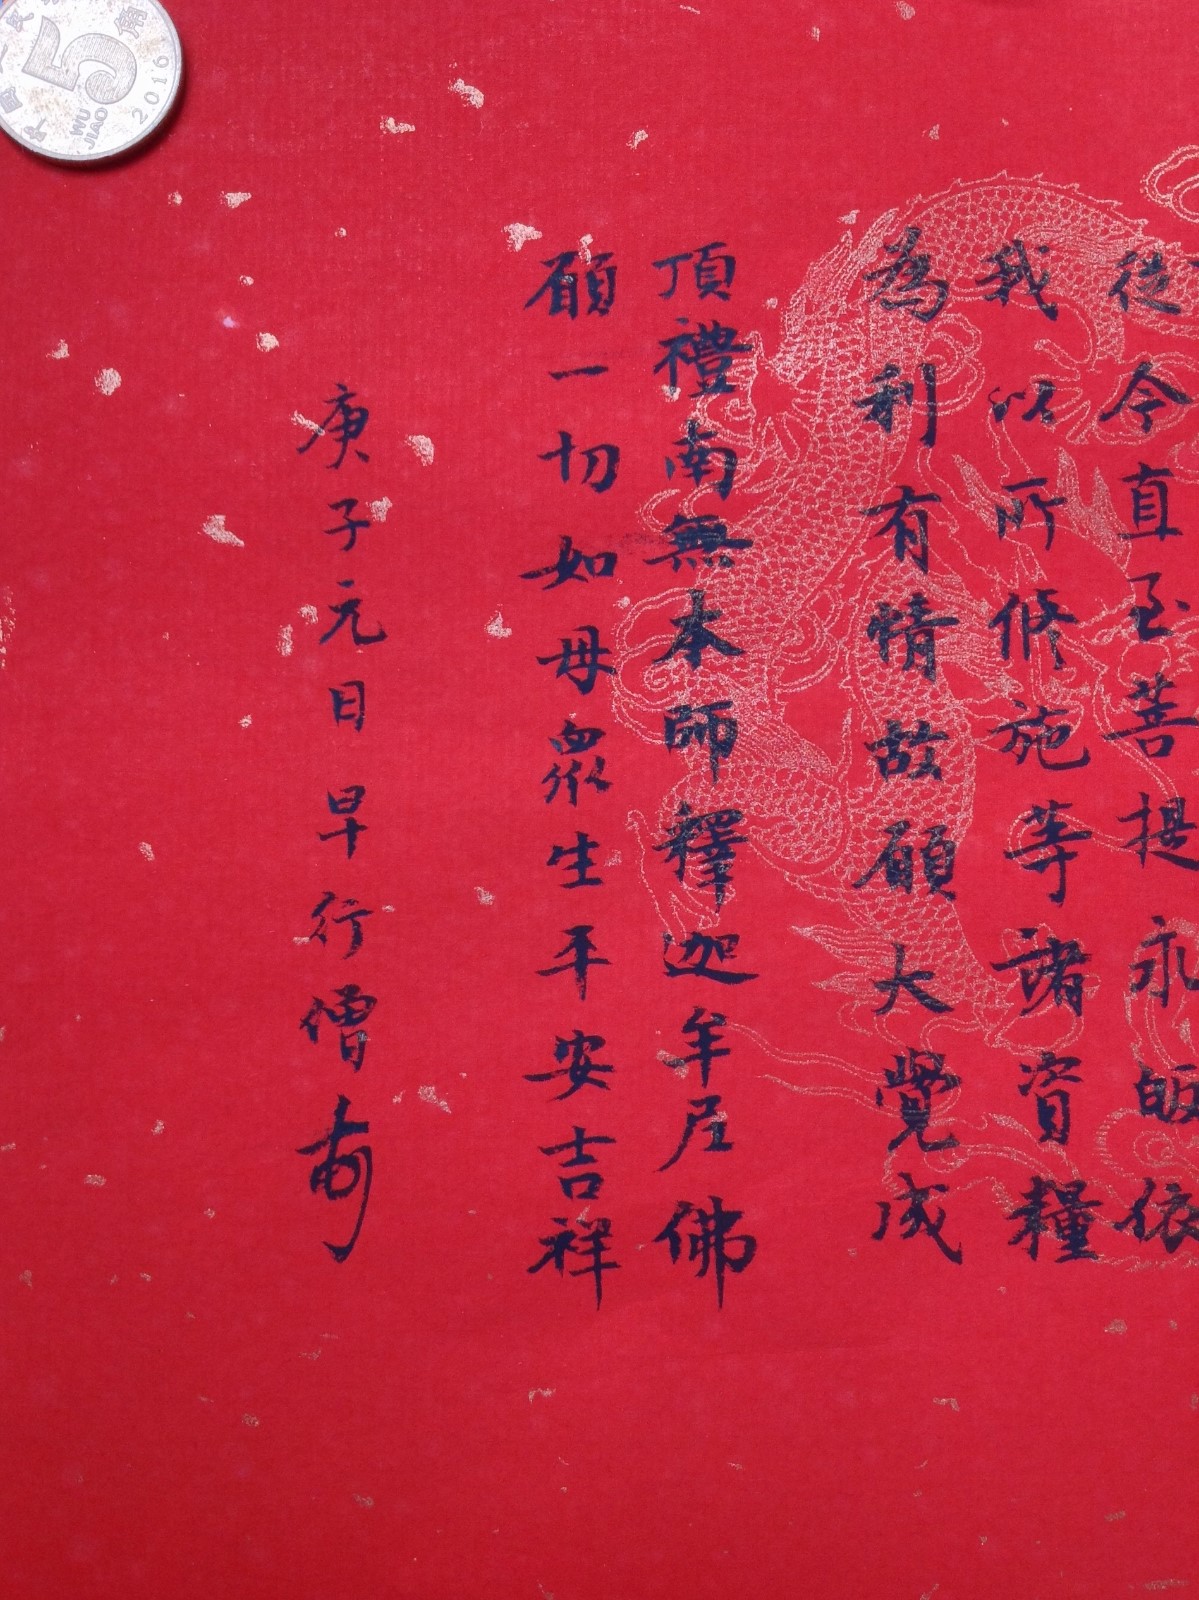 從今直至菩提永皈依
我以所修施等諸資糧
為利有情故願大覺成
頂禮南無本師釋迦牟尼佛
願一切如母眾生平安吉祥
庚子元日早行僧
5角
WU
JIAO
2016